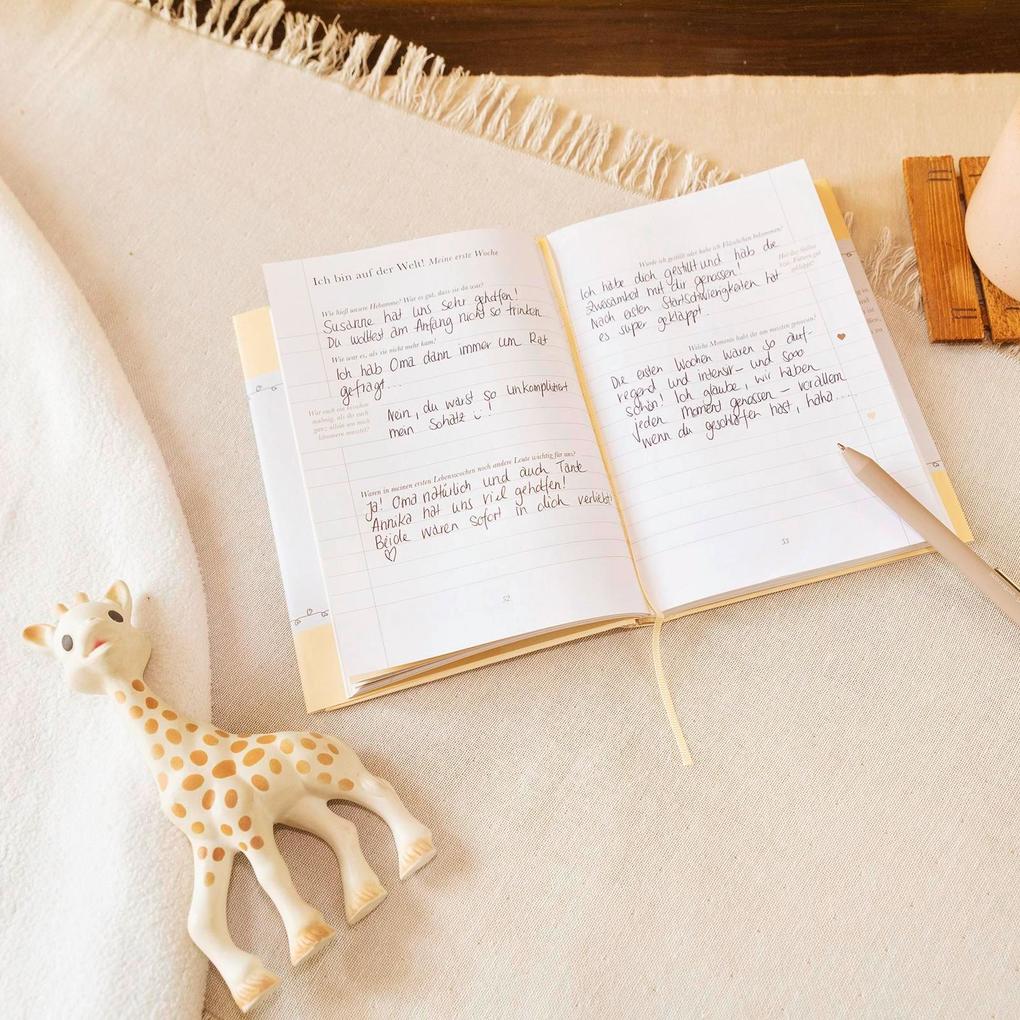 Ich bin auf der Welt! Meine erste Woche
Wie hieß unsere Hebamme? War es gut, dass sie da war?
Susanne hat uns sehr geholfen!
Du wolltest am Anfang nicht so trinken
Wie war es, als sie nicht mehr kam?
Ich hab Oma dann immer um Rat
gefragt...
War auch ein bisschen
mulmig, als du mich
ganz allein um mich
kümmern musstest?
Nein, du warst so unkompliziert
mein Schatz !
Waren in meinen ersten Lebenswochen noch andere Leute wichtig für uns?
Ja! Oma natürlich und auch Tante
Annika hat uns viel geholfen!
Beide waren sofort in dich verliebt
52
Wurde ich gestillt oder habe ich Fläschchen bekommen?
Ich habe dich gestillt und hab die
Zweisamkeit mit dir genossen!
Nach ersten Startschwierigkeiten hat
es super geklappt!
Hat das Stillen
bzw. Füttern gut
geklappt?
Welche Momente hast du am meisten genossen?
Die ersten Wochen waren so auf-
regend und intensiv- und sooo
schön! Ich glaube, wir haben
jeden moment genossen - vorallem
wenn du geschlafen hast, haha....
53